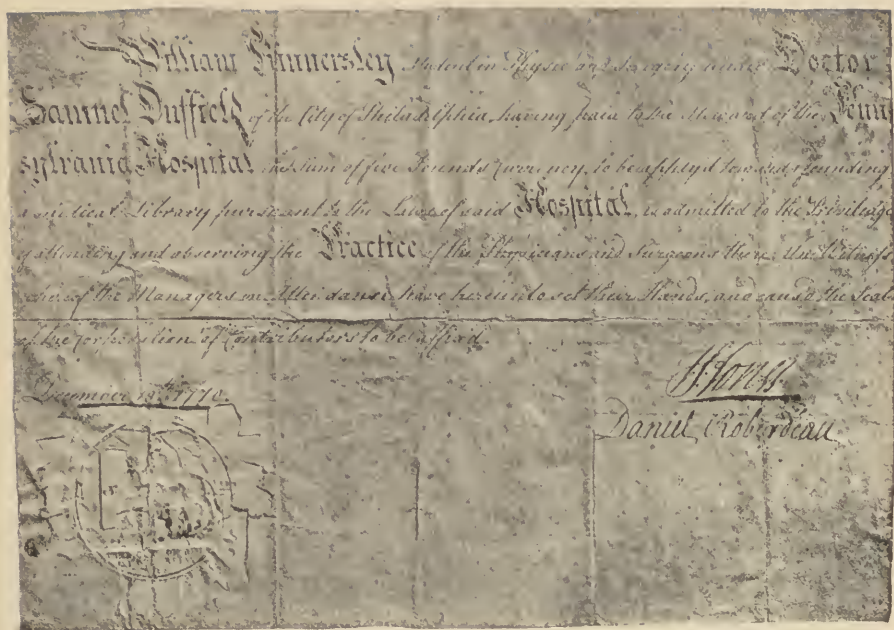 William Kinnersley Student in Physic and Surgery under Doctor
Samuel Duffield of the City of Philadelphia, having paid to the Steward of the Penn
sylvania Hospital the Sum of five Pounds Currency, to be apply'd towards founding
a medical Library pursuant to the Laws of said Hospital, is admitted to the Privilege
of attending and observing the Practice of the Physicians and Surgeons there; In Witness
whereof the Managers on Attendance have hereunto set their Hands, and caus'd the Seal
of the Corporation of Contributors to be affixed.
December 1770.
Jones
Daniel Roberdeau